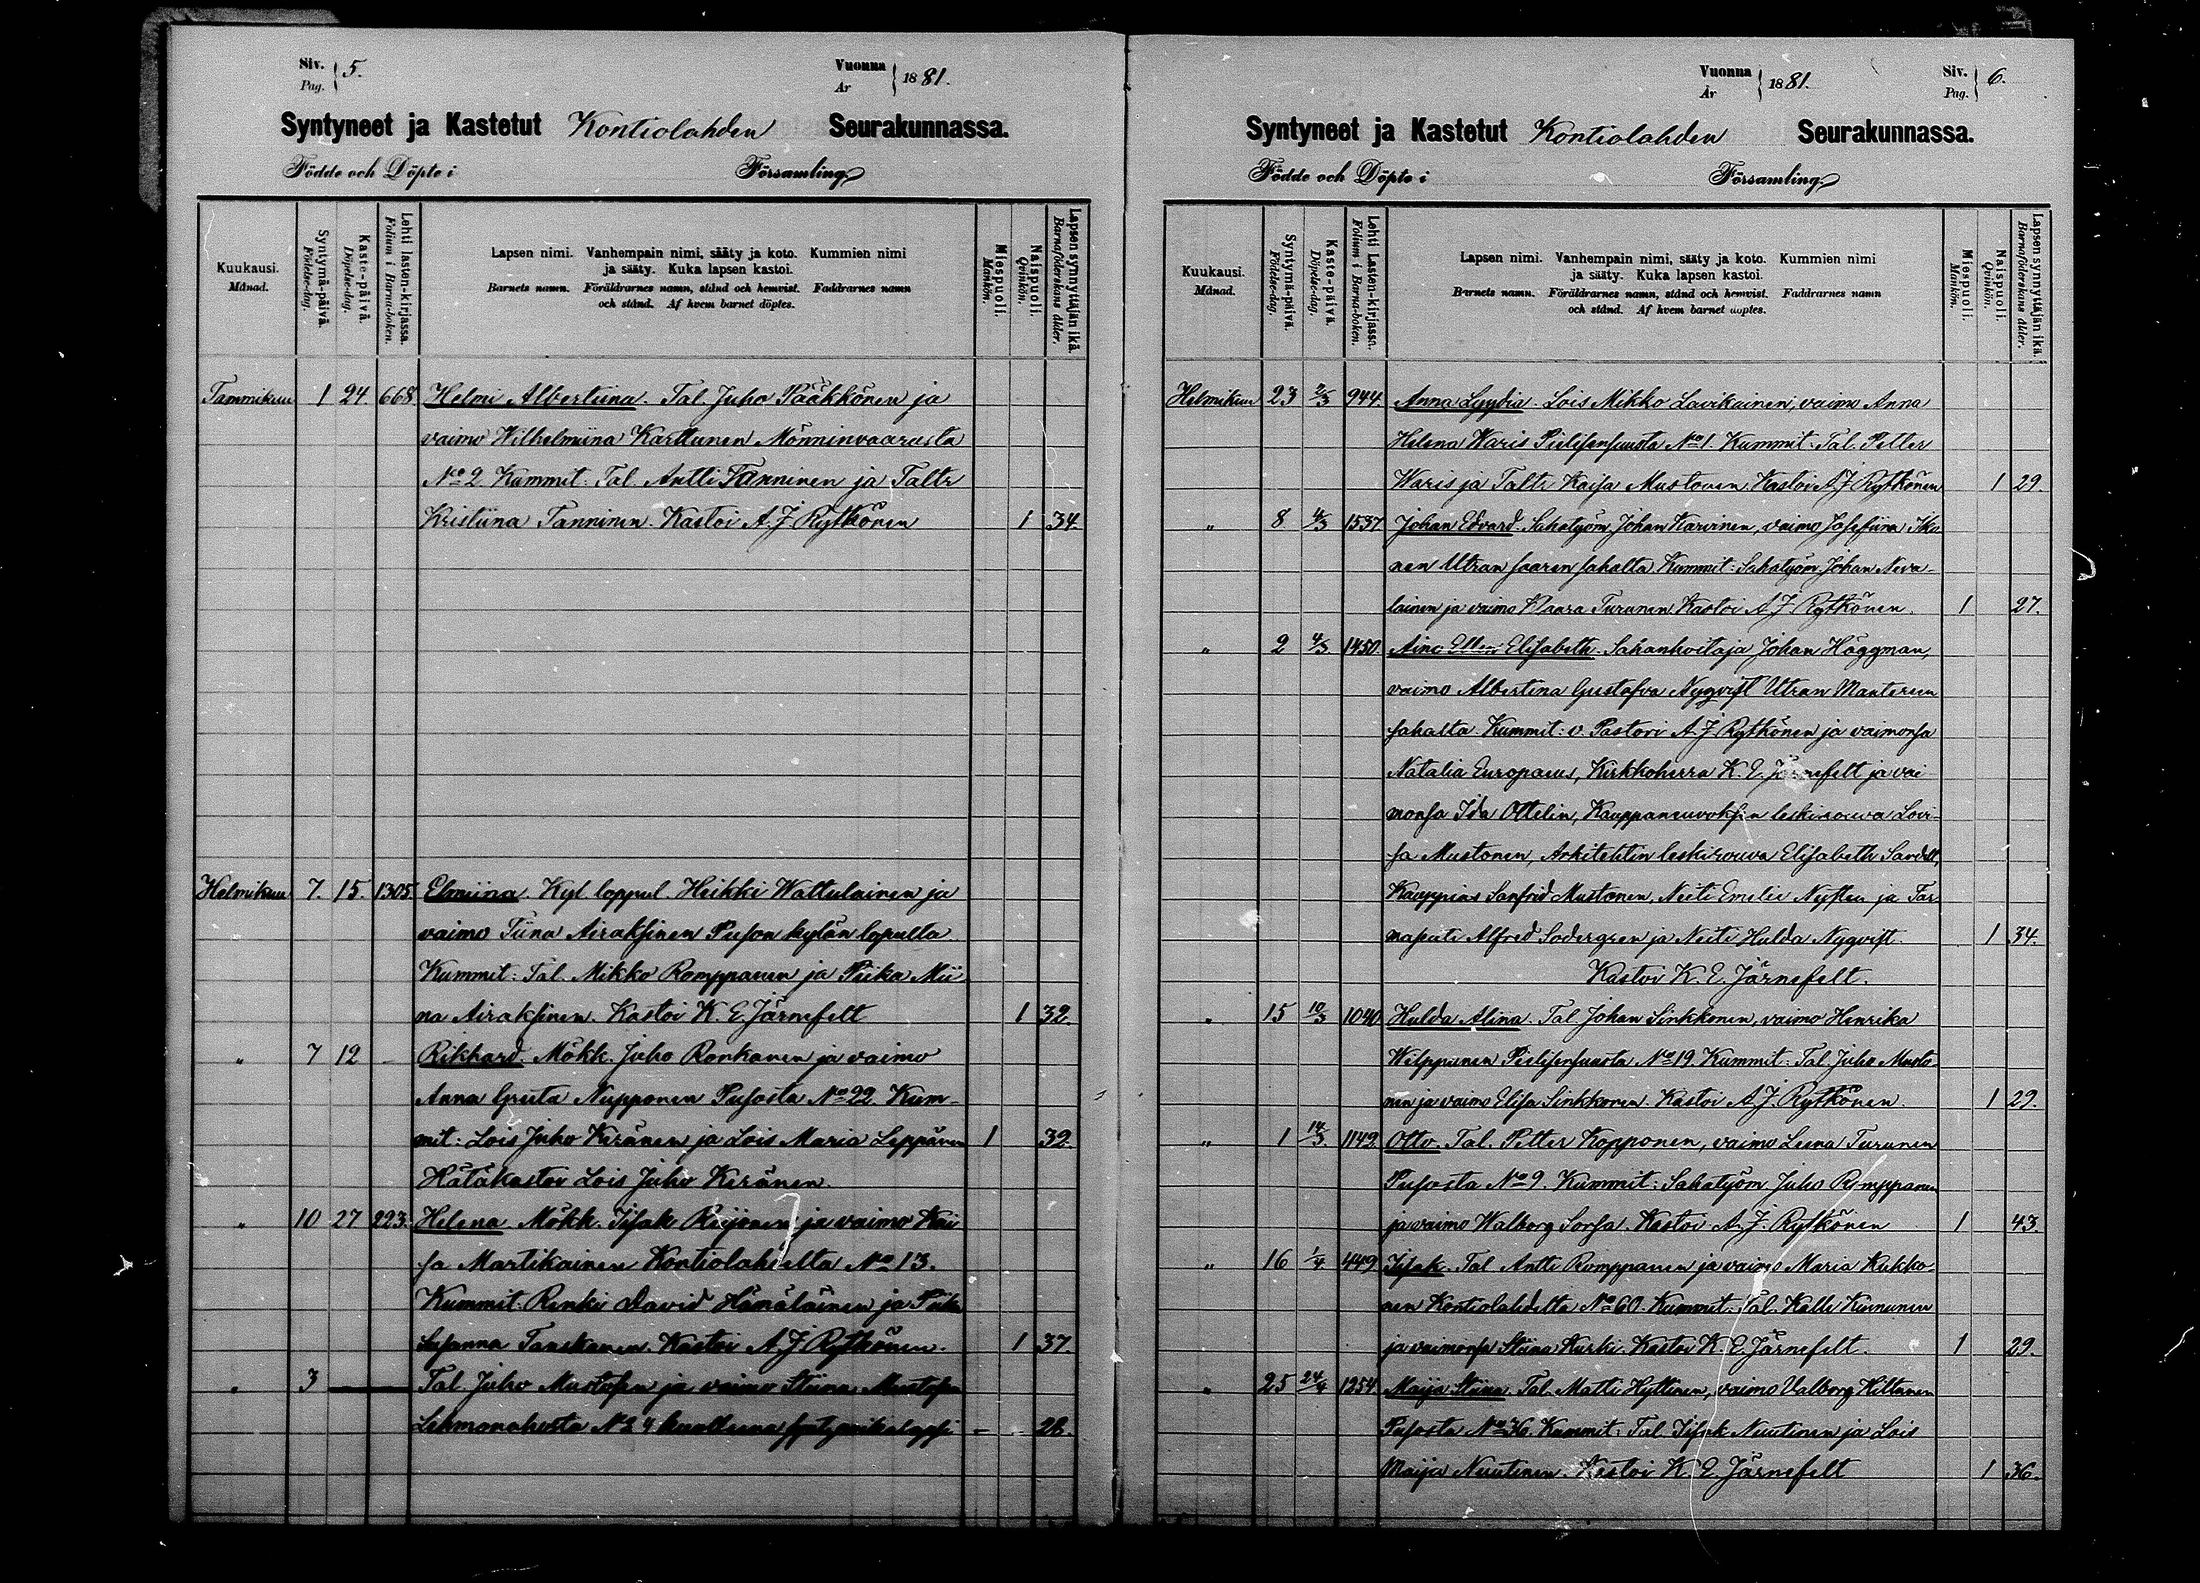 Siv. 5.
Pag.
Vuonna 1881.
År
Syntyneet ja Kastetut Kontiolahden Seurakunnassa.
Födde och Döpte i Församling.
Kuukausi.
Månad.
Syntymä-päivä.
Födelse-dag.
Kaste-päivä.
Döpelse-dag.
Lehti lasten-kirjassa.
Folium i Barna-boken.
Lapsen nimi. Vanhempain nimi, sääty ja koto. Kummien nimi
ja sääty. Kuka lapsen kastoi.
Barnets namn. Föräldrarnes namn, stånd och hemvist. Faddrarnes namn
och stånd. Af hvem barnet döptes.
Miespuoli.
Mankön.
Naispuoli.
Qvinkön.
Lapsen synnyttäjän ikä.
Barnaföderskans ålder.
Tammikuu 1 24. 668 Helmi Albertiina. Tal. Juho Pääkkönen ja
vaimo Wilhelmiina Karttunen Mönninvaarasta
No 2 Kummit. Tal. Antti Tanninen ja Taltr
Kristiina Tanninen. Kastoi A. J. Rytkönen 1 34
Helmikuu 7. 15. 1305. Elmiina. Kyl. loppul. Heikki Wattulainen ja
vaimo Tiina Airaksinen Puson kylän lopulta.
Kummit: Tal. Mikko Romppanen ja Piika Mii-
na Airaksinen. Kastoi K. E. Järnefelt 1 32.
" 7 12 - Rikhard. Mökk. Juho Ronkanen ja vaimo
Anna Greeta Nupponen Pusosta No 22. Kum-
mit: Lois Juho Keränen ja Lois Maria Leppänen 1 32.
Hätäkastoi Lois Juho Keränen.
" 10 27 223. Helena Mökk. Iisak Reijonen ja vaimo Kai
sa Martikainen Kontiolahdelta No 13.
Kummit. Renki David Hämäläinen ja Piika
Susanna Tanskanen. Kastoi A. J. Rytkönen. 1 37.
" 3 Tal. Juho Mustosen ja vaimo Stiina Mustosen
Lehmonahosta No 4 kuolleena syntynyt lapsi - - 28.
Vuonna 1881.
År
Siv. 6.
Pag.
Syntyneet ja Kastetut Kontiolahden Seurakunnassa.
Födde och Döpte i Församling.
Kuukausi.
Månad.
Syntymä-päivä.
Födelse-dag.
Kaste-päivä.
Döpelse-dag.
Lehti Lasten-kirjassa.
Folium i Barna-boken.
Lapsen nimi. Vanhempain nimi, sääty ja koto. Kummien nimi
ja sääty. Kuka lapsen kastoi.
Barnets namn. Föräldrarnes namn, stånd och hemvist. Faddrarnes namn
och stånd. Af hvem barnet döptes.
Miespuoli.
Mankön.
Naispuoli.
Qvinkön.
Lapsen synnyttäjän ikä.
Barnaföderskans ålder.
Helmikuu 23 2/3 944 Anna Lyydia. Lois Mikko Lavikainen, vaimo Anna
Helena Waris Pielisensuusta No 1. Kummit. Tal. Petter
Waris ja Taltr Kaisa Mustonen. Kastoi A J Rytkönen 1 29.
" 8 4/3 1537 Johan Edvard. Sahatyöm. Johan Karvinen, vaimo Josefiina Iko
nen Utran saaren sahalta Kummit: Sahatyöm Johan Neva-
lainen ja vaimo Klaara Turunen Kastoi A. J. Rytkönen. 1 27.
" 2 4/3. 1450 Aino Ellen Elisabeth. Sahanhoitaja Johan Häggman,
vaimo Albertina Gustafva Nyqvist Utran Manteren
sahalta. Kummit: v. Pastori A. J. Rytkönen ja vaimonsa
Natalia Europaeus, Kirkkoherra K. E. Järnefelt ja vai
monsa Ida Ottelin, Kauppaneuvoksen leskirouva Lovi-
sa Mustonen, Arkitehtin leskirouva Elisabeth
Kauppias Sanfrid Mustonen, Neiti Emelie ja Far
maseuti Alfred Södergren ja Neiti Hulda Nyqvist. 1 34.
Kastoi K. E. Järnefelt.
" 15 10/3 1040 Hulda Alina. Tal. Johan Sinkkonen, vaimo Henrika
Wilppunen Pielisensuusta No 19. Kummit: Tal. Juho Musto-
nen ja vaimo Elisa Sinkkonen. Kastoi A. J. Rytkönen. 1 29.
" 1 14/3. 1149 Otto. Tal. Petter Kopponen, vaimo Leena Turunen
Pusosta No 9. Kummit: Sahatyöm. Juho Romppanen
ja vaimo Walborg Sorsa. Kastoi A. J. Rytkönen 1 43.
" 16 1/4 449. Iisak. Tal. Antti Romppanen ja vaimo Maria Kukko-
nen Kontiolahdelta No 60. Kummit: Tal. Kalle Kinnunen
ja vaimonsa Stiina Kurki. Kastoi K. E. Järnefelt. 1 29.
" 25 24/4 1254 Maija Stiina. Tal. Matti Hyttinen, vaimo Valborg Hiltunen
Pusosta No 36. Kummit: Tal. Iisak Nuutinen ja Lois
Maija Nuutinen. Kastoi K. E. Järnefelt 1 36.